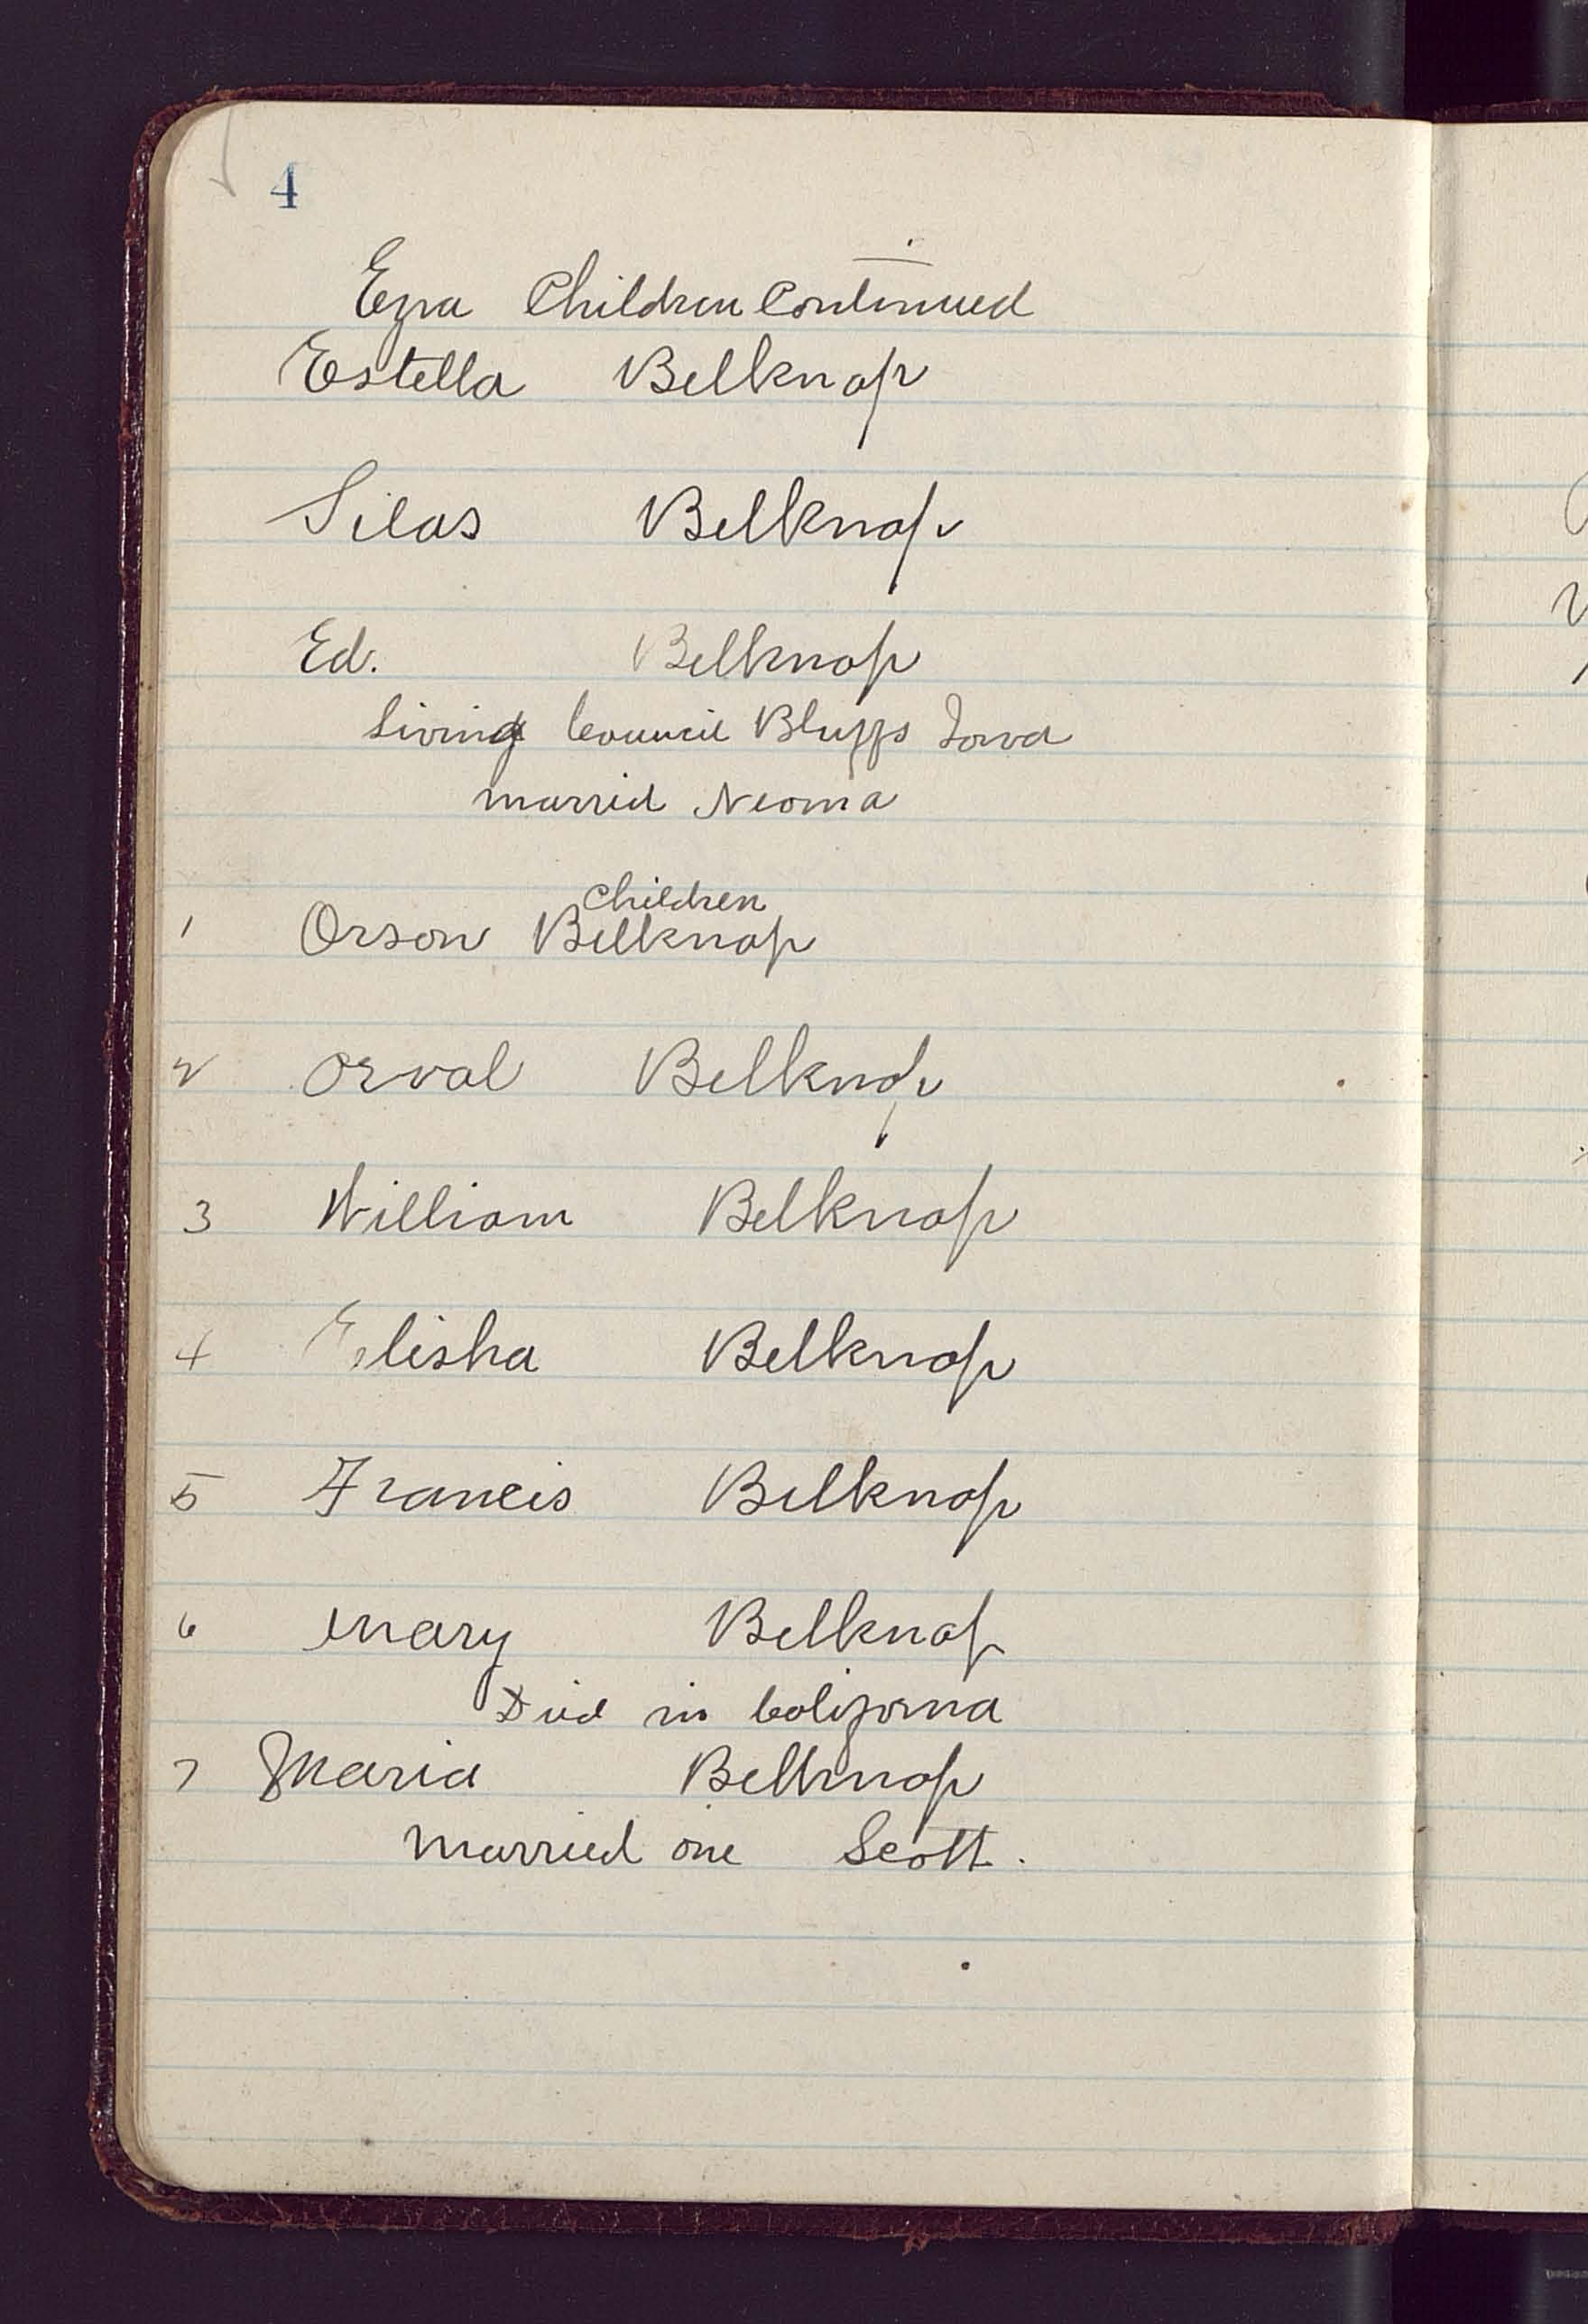 4
Ezra Children Continued
Estella Belknap
Silas Belknap
Ed. Belknap
Living Council Bluffs Iowa
married Neoma
Children
1 Orson Belknap
2 Orval Belknap
3 William Belknap
4 Elisha Belknap
5 Francis Belknap
6 Mary Belknap
Died in California
7 Maria Belknap
Married one Scott.